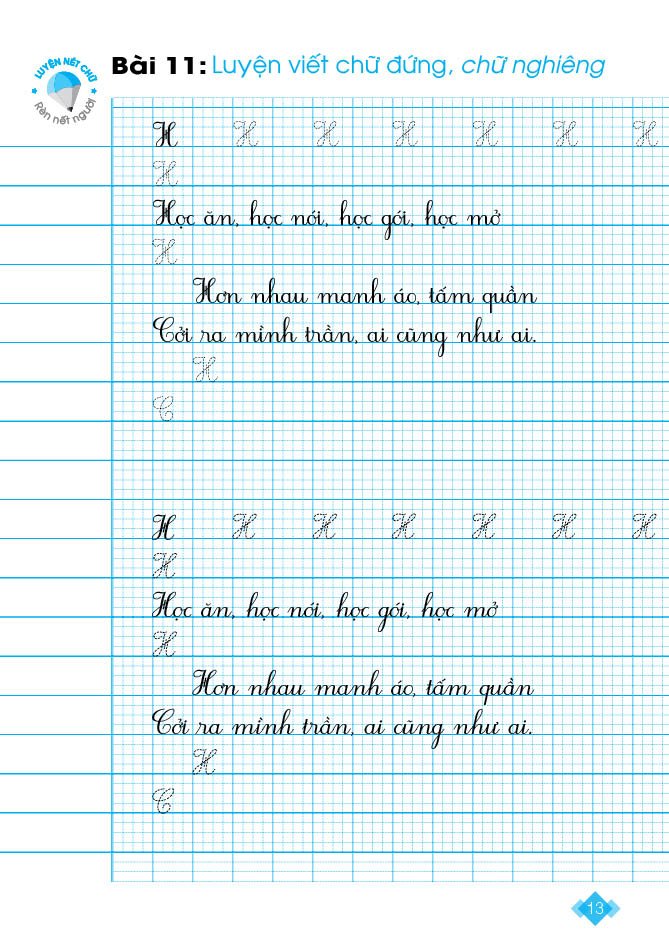 LUYỆN NẾT CHỮ
Rèn nết người
Bài 11: Luyện viết chữ đứng, chữ nghiêng
H H H H H H H
H
Học ăn, học nói, học gói, học mở
H
Hơn nhau manh áo, tấm quần
Cởi ra mình trần, ai cũng như ai.
H
C
H H H H H H H
H
Học ăn, học nói, học gói, học mở
H
Hơn nhau manh áo, tấm quần
Cởi ra mình trần, ai cũng như ai.
H
C
13